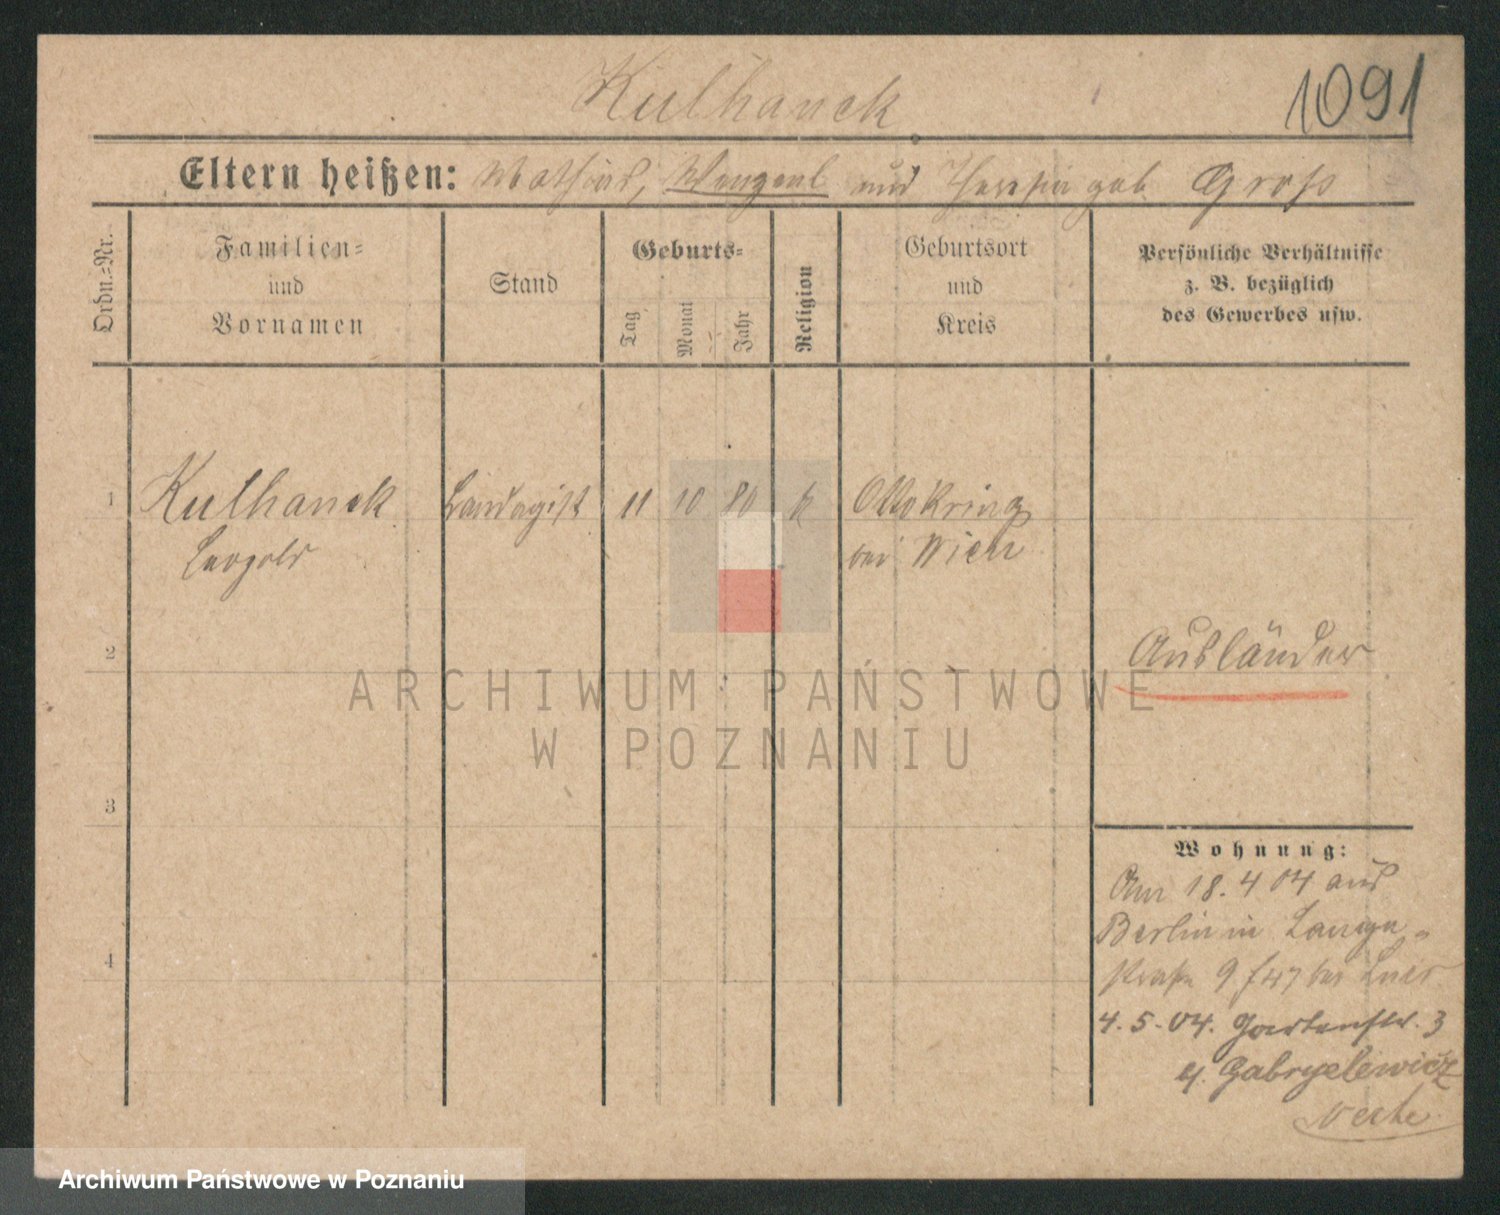 Kulhanek
1091
Eltern heißen: Mathias, Wenzel und Theresia geb. Groß
Ordn.=Nr.
Familien=
und
Vornamen
Stand
Geburts=
Tag
Monat
Jahr
Religion
Geburtsort
und
Kreis
Persönliche Verhältnisse
z. B. bezüglich
des Gewerbes usw.
1 Kulhanek 11 10 80 k Ottokring
Leopold bei Wien
2
Ausländer
3
4
Wohnung:
Am 18.4 04 aus
Berlin in Lange-
straße 9 bei
4.5.04. Gartenstr. 3
Gabryelewicz
ARCHIWUM PAŃSTWOWE
W POZNANIU
Archiwum Państwowe w Poznaniu